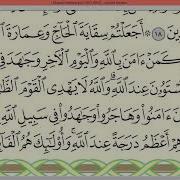 دِينَ ١٨ ۞ أَجَعَلۡتُمۡ سِقَايَةَ ٱلۡحَآجِّ وَعِمَارَةَ
كَمَنۡ ءَامَنَ بِٱللَّهِ وَٱلۡيَوۡمِ ٱلۡأٓخِرِ وَجَٰهَدَ فِي
سۡتَوُۥنَ عِندَ ٱللَّهِۗ وَٱللَّهُ لَا يَهۡدِي ٱلۡقَوۡمَ ٱلظَّ
ءَامَنُواْ وَهَاجَرُواْ وَجَٰهَدُواْ فِي سَبِيلِ ٱللَّهِ
هِمۡ أَعۡظَمُ دَرَجَةً عِندَ ٱللَّهِۚ وَأُوْلَٰٓئِكَ هُمُ ٱلۡفَآ